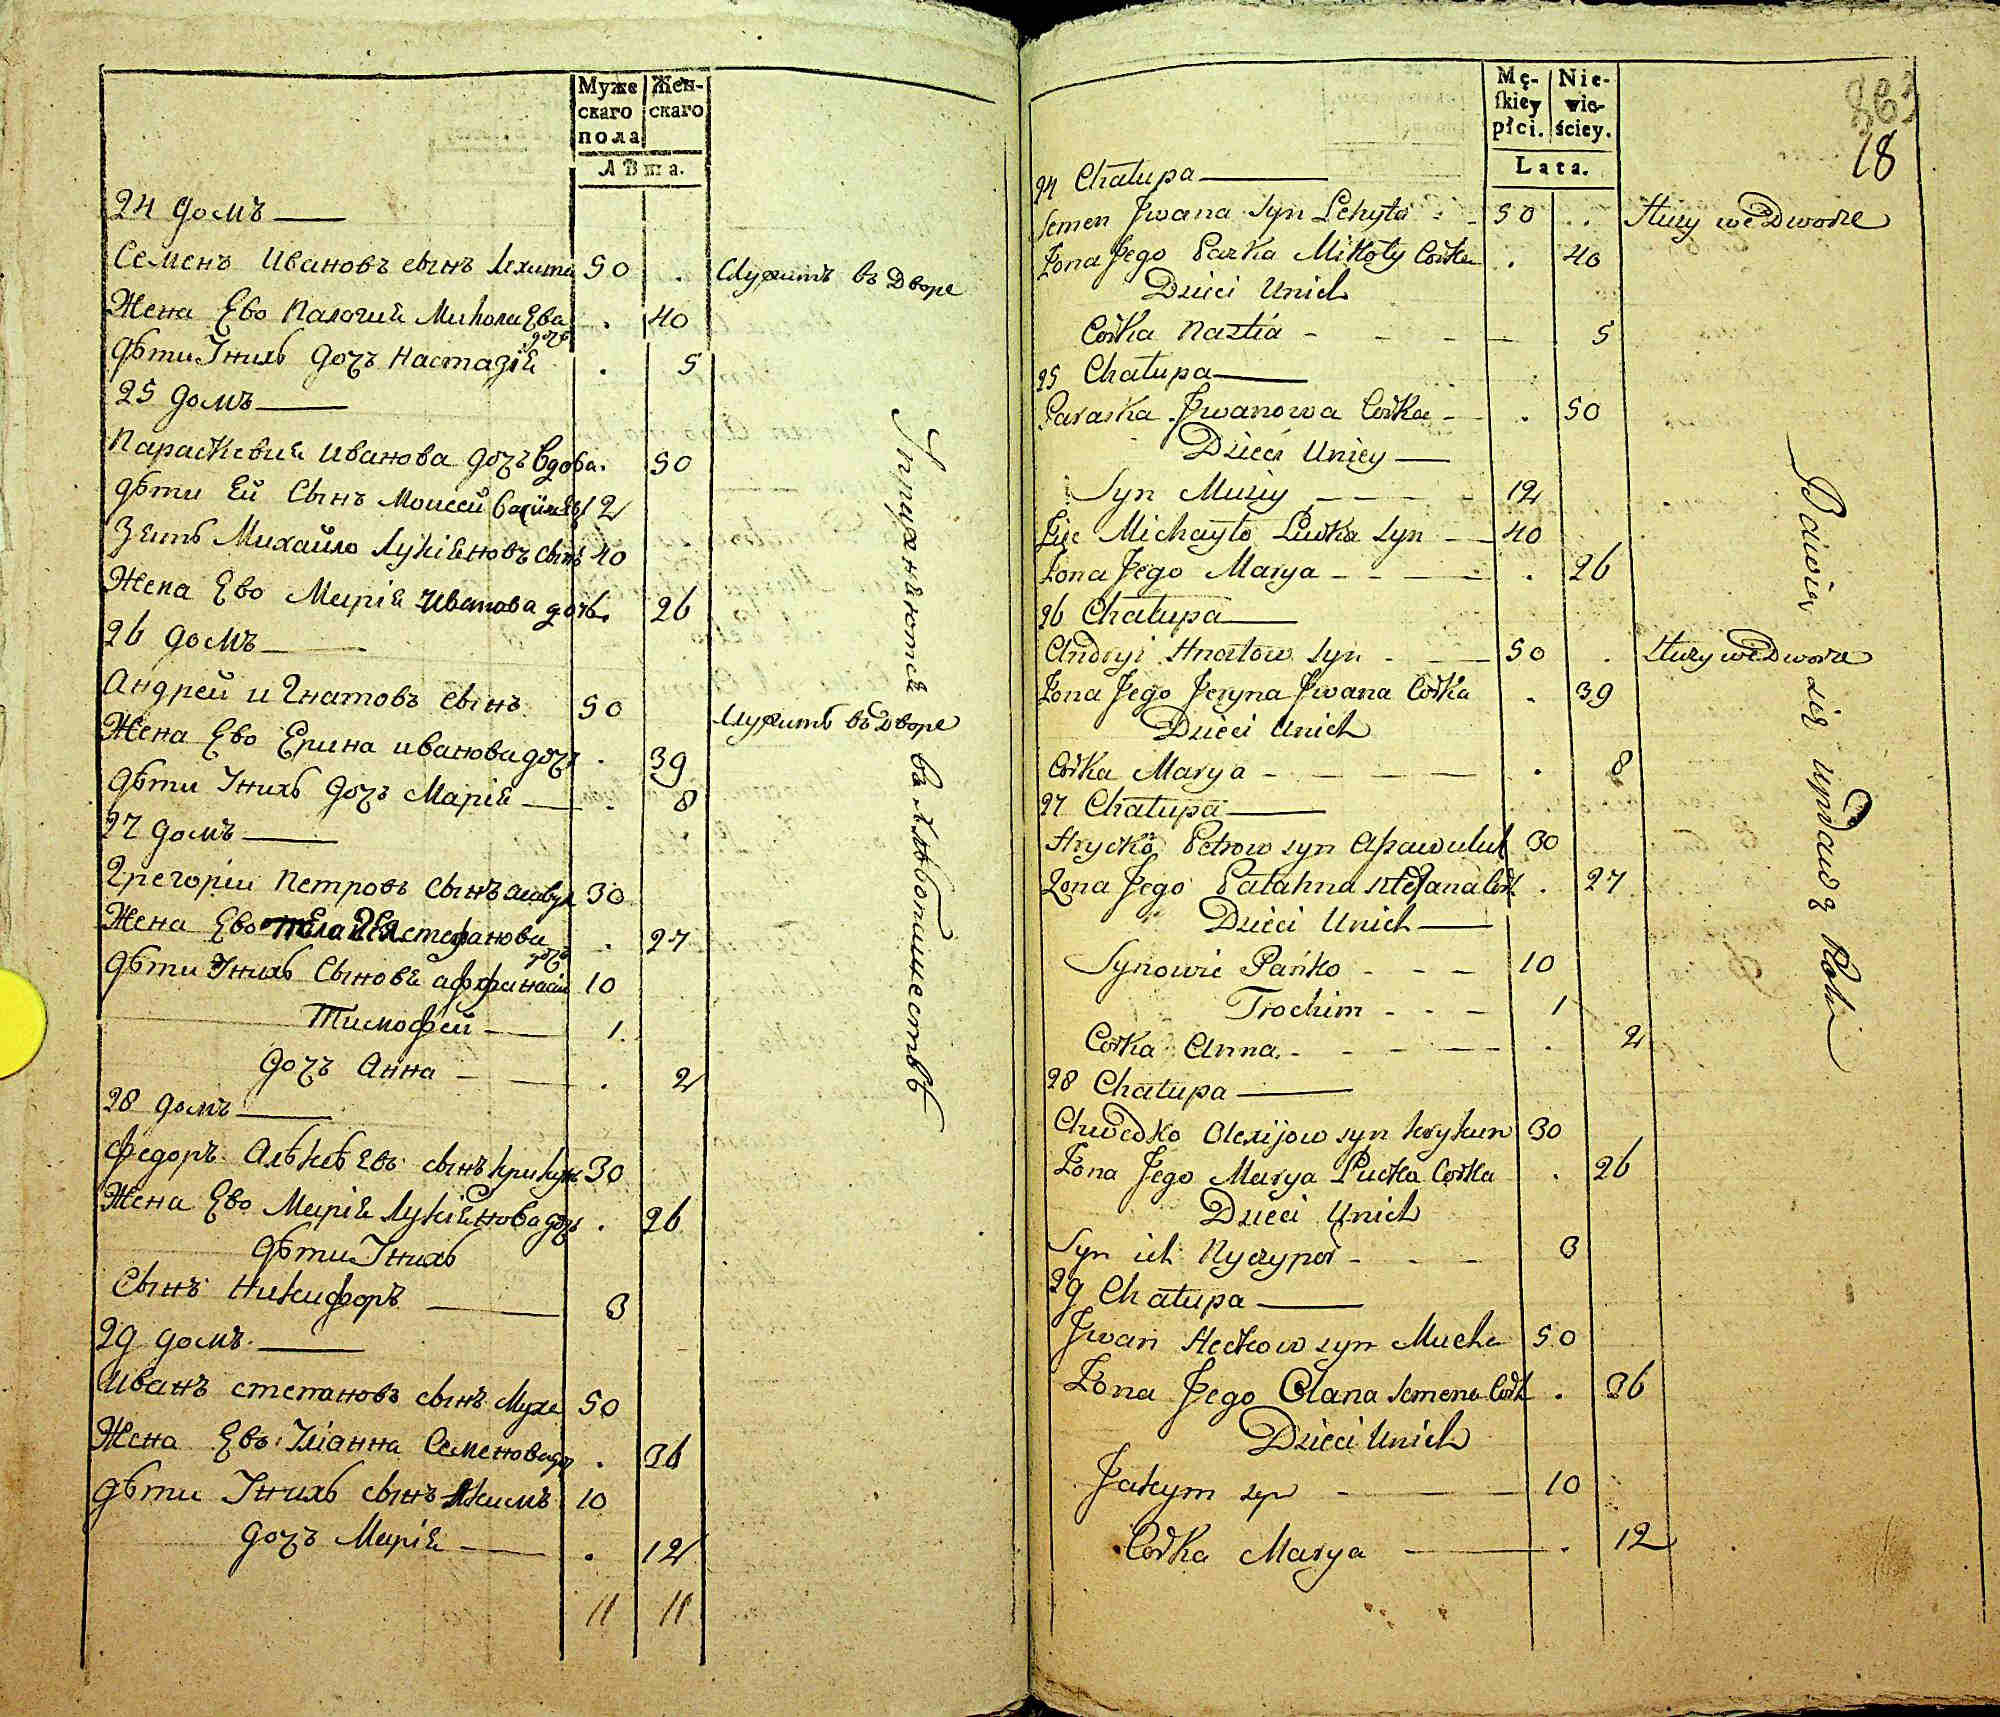 Муже
скаго
пола
Жен-
скаго
Лѣта.
24 домъ
Семенъ Ивановъ сынъ Лехита 50 . Служитъ въ Дворе
Жена Ево Палагия Миколаева дочь . 40
Дѣти Унихъ дочь Настазия . 5
25 домъ
Параскевия Иванова дочь вдова . 50
дѣти Ей Сынъ Моисей 12
Зять Михайло Лукияновъ сынъ 40
Жена Ево Мария Иванова дочь . 26
26 домъ
Андрей Игнатовъ сынъ 50 Служитъ въ Дворе
Жена Ево Ерина иванова дочь . 39
дѣти Унихъ дочь Мария . 8
27 домъ
Григорій Петровъ Сынъ 30
Жена Ево Стефанова дочь . 27
дѣти Унихъ Сыновя аффанасій 10
Тимофей 1
дочь Анна . 2
28 домъ
Федоръ Алексѣевъ сынъ Крикун 30
Жена Ево Мария Лукиянова дочь . 26
дѣти Унихъ
Сынъ Никифоръ 3
29 домъ
Иванъ степановъ сынъ Муха 50
Жена Ево Улианна Семенова до . 36
дѣти Унихъ сынъ Якимъ 10
дочь Мария . 12
11 11
Упражняются въ хлѣбопашествѣ
Mę-
skiey
płci.
Nie-
wie-
ściey.
Lata.
863
18
24 Chałupa
Semen Jwana syn Lehyta 50 . Służy we Dworze
Żona Jego Pażka Mikoły Corka . 40
Dzieci Unich
Corka Nastia 5
25 Chałupa
Paraska Jwanowa Corka . 50
Dzieci Uniey
Syn Musiy 12
Zięc Michayło Lucka syn 40
Żona Jego Marya . 26
26 Chałupa
Andryi Hnatow syn 50 . Służy we Dworze
Żona Jego Jeryna Jwana Corka . 39
Dzieci Unich
Corka Marya . 8
27 Chałupa
Hryćko Petrow syn 30
Żona Jego Pałahna Stefana Cork . 27
Dzieci Unich
Synowie Pańko 10
Trochim 1
Corka Anna . 2
28 Chałupa
Chwedko Olexijow syn Krykun 30
Żona Jego Marya Lucka Corka . 26
Dzieci Unich
Syn ich Nyczypor 3
29 Chałupa
Jwan Steckow syn Mucha 50
Żona Jego Olana Semena Cork . 36
Dzieci Unich
Jakym syn 10
Corka Marya . 12
Bawią się uprawą Roli